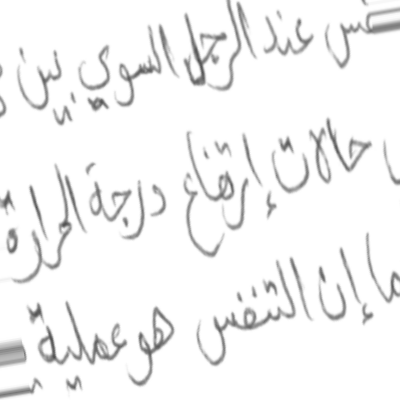 عند الرجل السوي بين
حالات إرتفاع درجة الحرارة
ما إن التنفس هو عملية